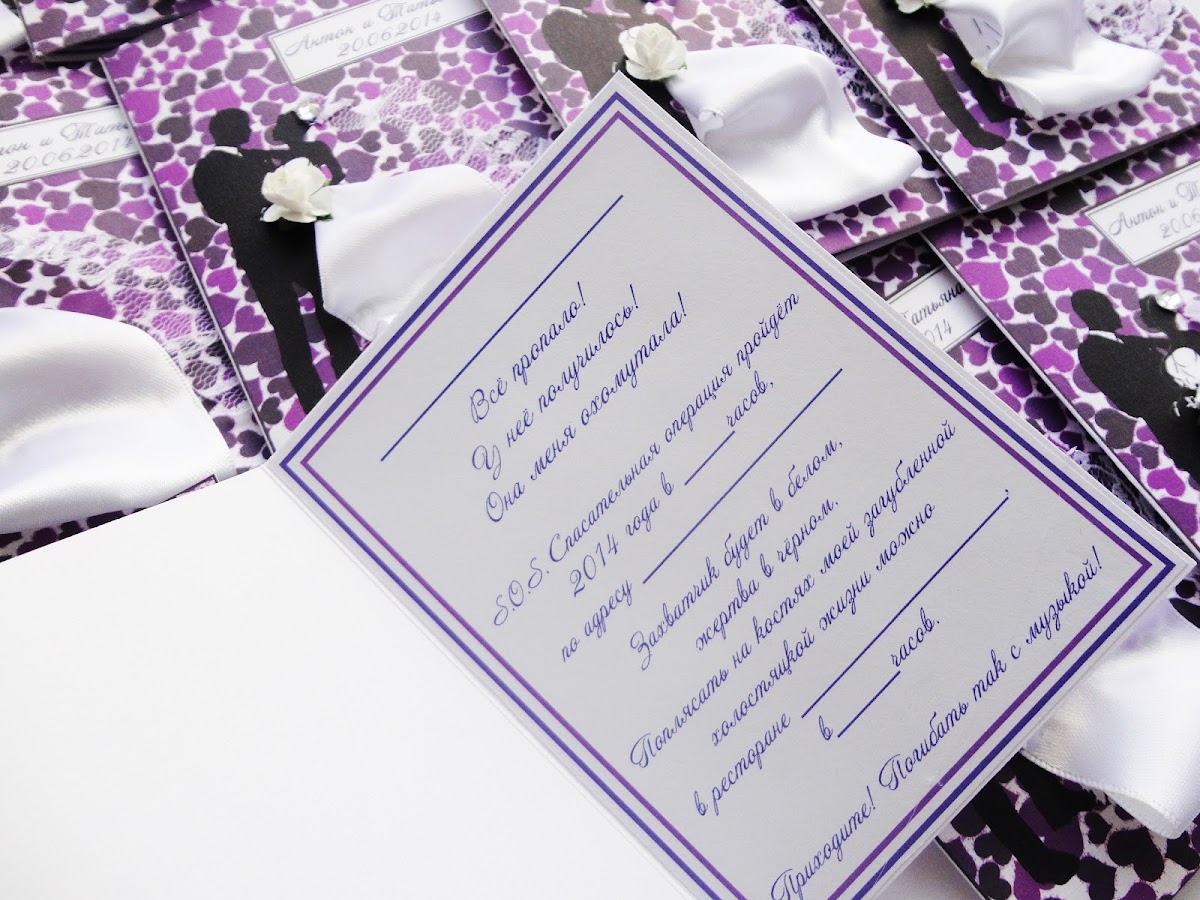 Антон и Татья
20.06.2014
тон и Тати
20.06.2014
Антон и
20.0
Татьяна
014
Всё пропало!
У неё получилось!
Она меня охомутала!
S.O.S. Спасательная операция пройдёт
2014 года в ____ часов,
по адресу ____
Захватчик будет в белом,
жертва в чёрном.
Поплясать на костях моей загубленной
холостяцкой жизни можно
в ресторане ____,
в ____ часов.
Приходите! Погибать так с музыкой!